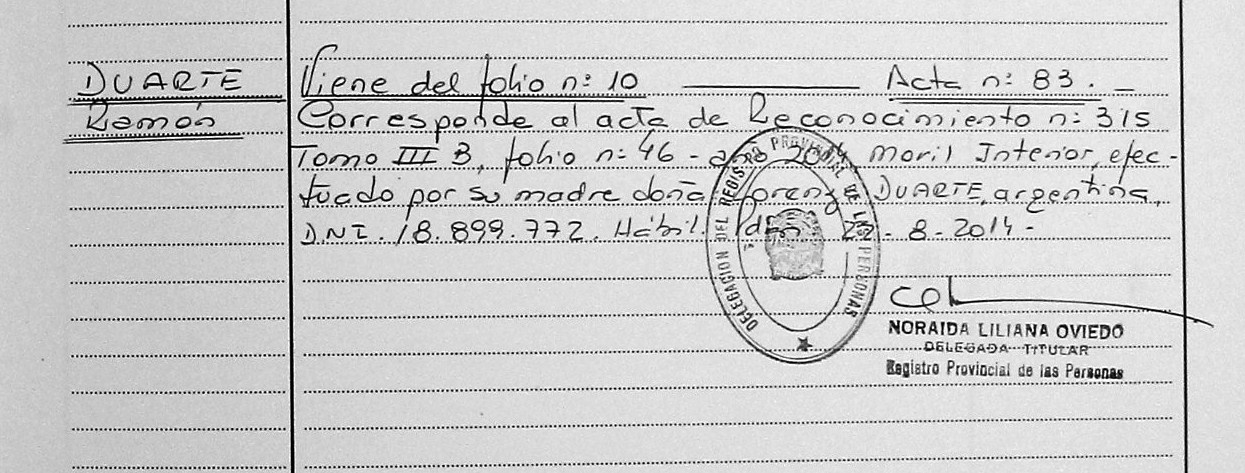 DUARTE Viene del folio n: 10 Acta n: 83. -
Ramón Corresponde al acta de Reconocimiento n: 315
Tomo III B, folio n: 46 - año 2014 Moril Interior, efec-
tuado por su madre doña Lorenza DUARTE, argentina,
DNI. 18.899.772. Hábil. - 8 - 2014 -
DELEGACION DEL REGISTRO PROVINCIAL DE LAS PERSONAS
NORAIDA LILIANA OVIEDO
DELEGADA TITULAR
Registro Provincial de las Personas